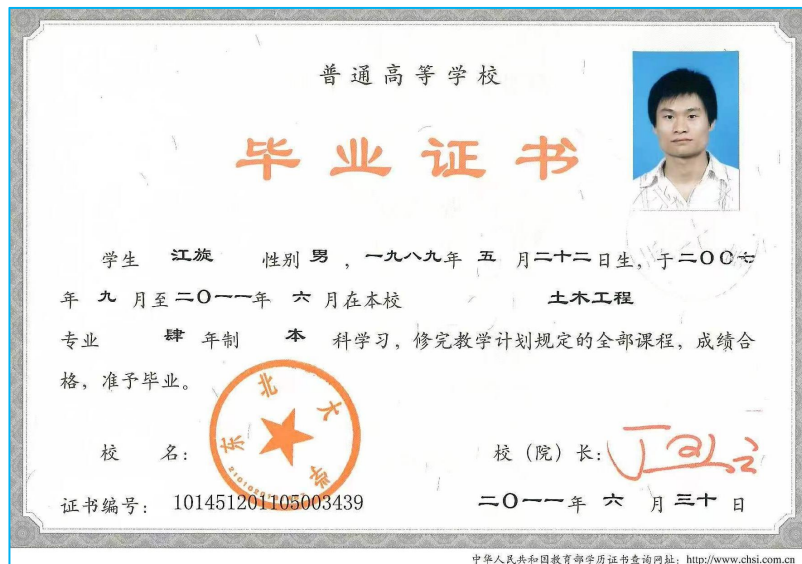 普通高等学校
毕业证书
学生 江旋 性别 男 ，一九八九年 五 月二十二日生，于二〇〇七
年 九 月至二〇一一年 六 月在本校 土木工程
专业 肆 年制 本 科学习，修完教学计划规定的全部课程，成绩合
格，准予毕业。
东北大学
校 名： 校（院）长：
证书编号： 101451201105003439 二〇一一年 六 月 三十 日
中华人民共和国教育部学历证书查询网址：http://www.chsi.com.cn